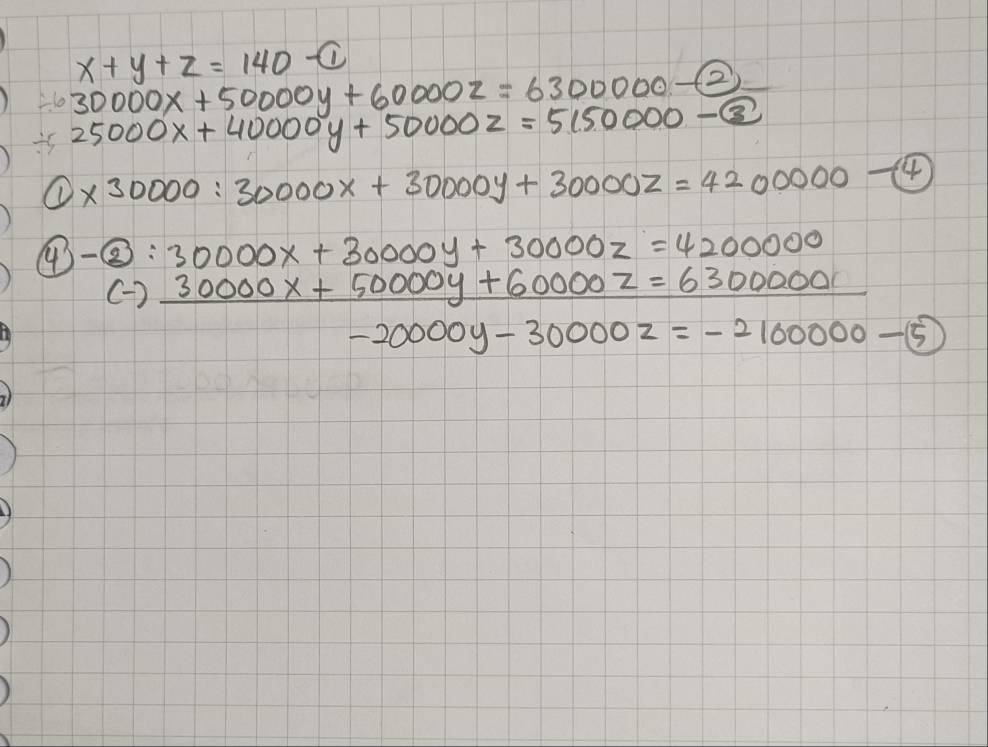 x + y + z = 140 - ①
30000x + 50000y + 60000z = 6300000 - ②
÷5 25000x + 40000y + 50000z = 5150000 - ③
① × 30000 : 30000x + 30000y + 30000z = 4200000 - ④
④ - ② : 30000x + 30000y + 30000z = 4200000
(-) 30000x + 50000y + 60000z = 6300000
-20000y - 30000z = -2100000 - ⑤